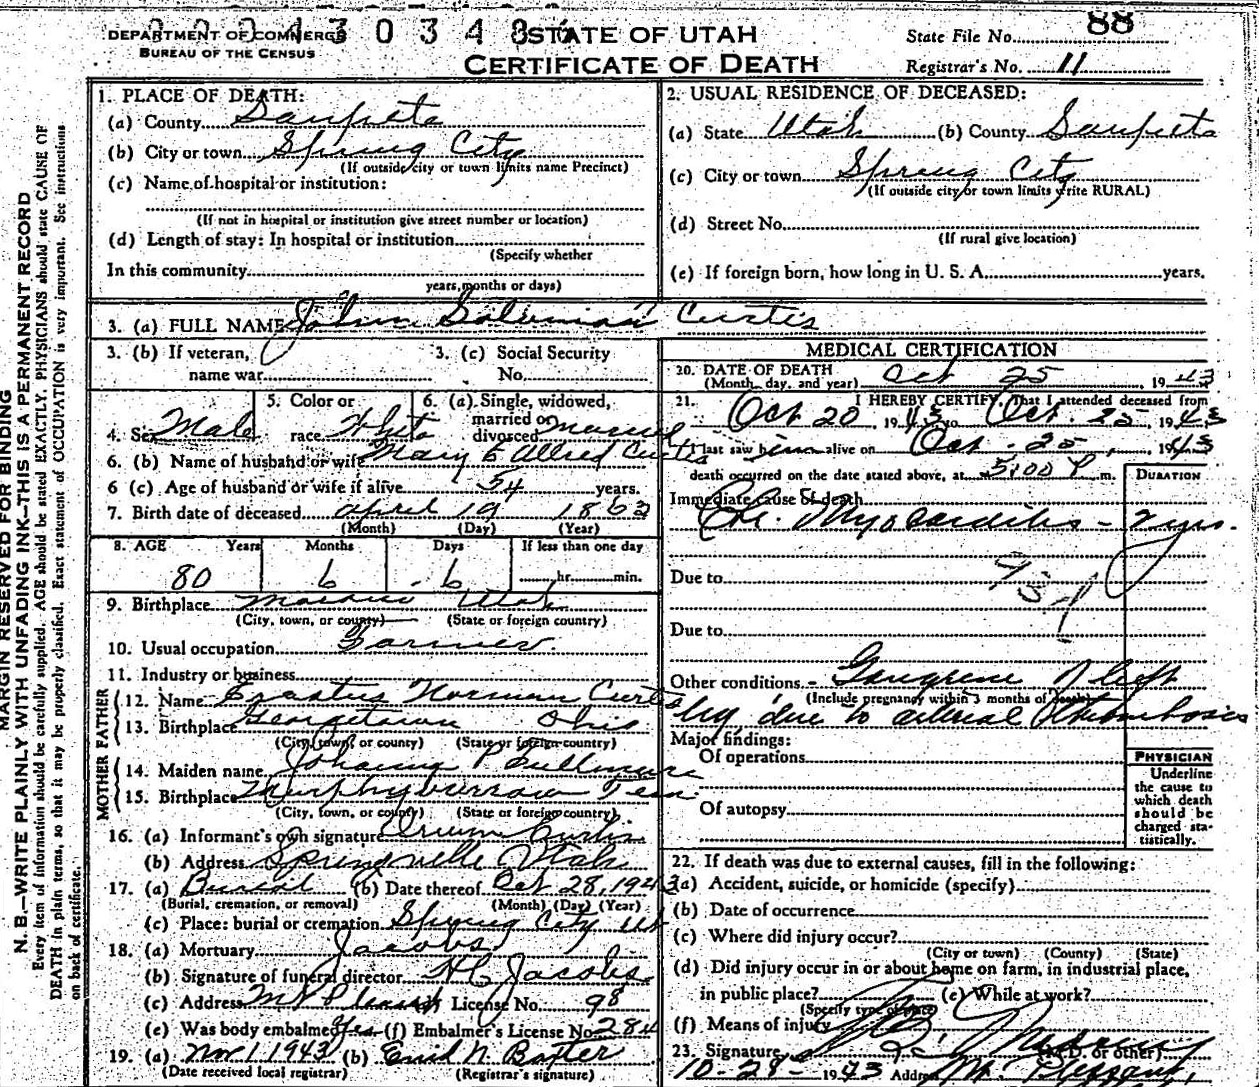 DEPARTMENT OF COMMERCE
BUREAU OF THE CENSUS
STATE OF UTAH
CERTIFICATE OF DEATH
State File No. 88
Registrar's No. 11
MARGIN RESERVED FOR BINDING
N. B.—WRITE PLAINLY WITH UNFADING INK—THIS IS A PERMANENT RECORD
Every item of information should be carefully supplied. AGE should be stated EXACTLY. PHYSICIANS should state CAUSE OF
DEATH in plain terms, so that it may be properly classified. Exact statement of OCCUPATION is very important. See instructions
on back of certificate.
1. PLACE OF DEATH:
(a) County Sanpete
(b) City or town Spring City
(If outside city or town limits name Precinct)
(c) Name of hospital or institution:
(If not in hospital or institution give street number or location)
(d) Length of stay: In hospital or institution
(Specify whether
In this community
years, months or days)
2. USUAL RESIDENCE OF DECEASED:
(a) State Utah (b) County Sanpete
(c) City or town Spring City
(If outside city or town limits write RURAL)
(d) Street No.
(If rural give location)
(e) If foreign born, how long in U. S. A. years.
3. (a) FULL NAME John Soloman Curtis
3. (b) If veteran, name war
3. (c) Social Security No.
4. Sex Male
5. Color or race White
6. (a) Single, widowed, married or divorced married
6. (b) Name of husband or wife Mary E Allred Curtis
6 (c) Age of husband or wife if alive 54 years.
7. Birth date of deceased April 19 1863
(Month) (Day) (Year)
8. AGE Years Months Days If less than one day
80 6 6 hr. min.
9. Birthplace Utah
(City, town, or county) (State or foreign country)
10. Usual occupation Farmer.
11. Industry or business
FATHER
12. Name Erastus Norman Curtis
13. Birthplace Georgetown Ohio
(City, town, or county) (State or foreign country)
MOTHER
14. Maiden name Johanna Fullmore
15. Birthplace Murphyburrow Tenn.
(City, town, or county) (State or foreign country)
16. (a) Informant's own signature Curtis
(b) Address Springville Utah
17. (a) Bureal (b) Date thereof Oct 28, 1943
(Burial, cremation, or removal) (Month) (Day) (Year)
(c) Place: burial or cremation Spring City Ut
18. (a) Mortuary Jacobs
(b) Signature of funeral director H C Jacobs
(c) Address Mt Pleasant License No. 98
(e) Was body embalmed Yes (f) Embalmer's License No 284
19. (a) Nov 1 1943 (b) Enid N. Baxter
(Date received local registrar) (Registrar's signature)
MEDICAL CERTIFICATION
20. DATE OF DEATH
(Month, day, and year) Oct 25, 1943
21. I HEREBY CERTIFY, That I attended deceased from
Oct 20, 1943 to Oct. 25, 1943
I last saw him alive on Oct. 25, 1943
death occurred on the date stated above, at 5:00 P. m.
DURATION
Immediate cause of death
Chr. Myocarditis - 2 yrs.
Due to
Due to
Other conditions - Gangrene of left
(Include pregnancy within 3 months of death)
leg due to arterial thrombosis
Major findings:
Of operations
Of autopsy
PHYSICIAN
Underline
the cause to
which death
should be
charged sta-
tistically.
22. If death was due to external causes, fill in the following:
(a) Accident, suicide, or homicide (specify)
(b) Date of occurrence
(c) Where did injury occur?
(City or town) (County) (State)
(d) Did injury occur in or about home on farm, in industrial place,
in public place? (e) While at work?
(Specify type of place)
(f) Means of injury
23. Signature (M.D. or other)
10-28-1943 Address Mt. Pleasant,